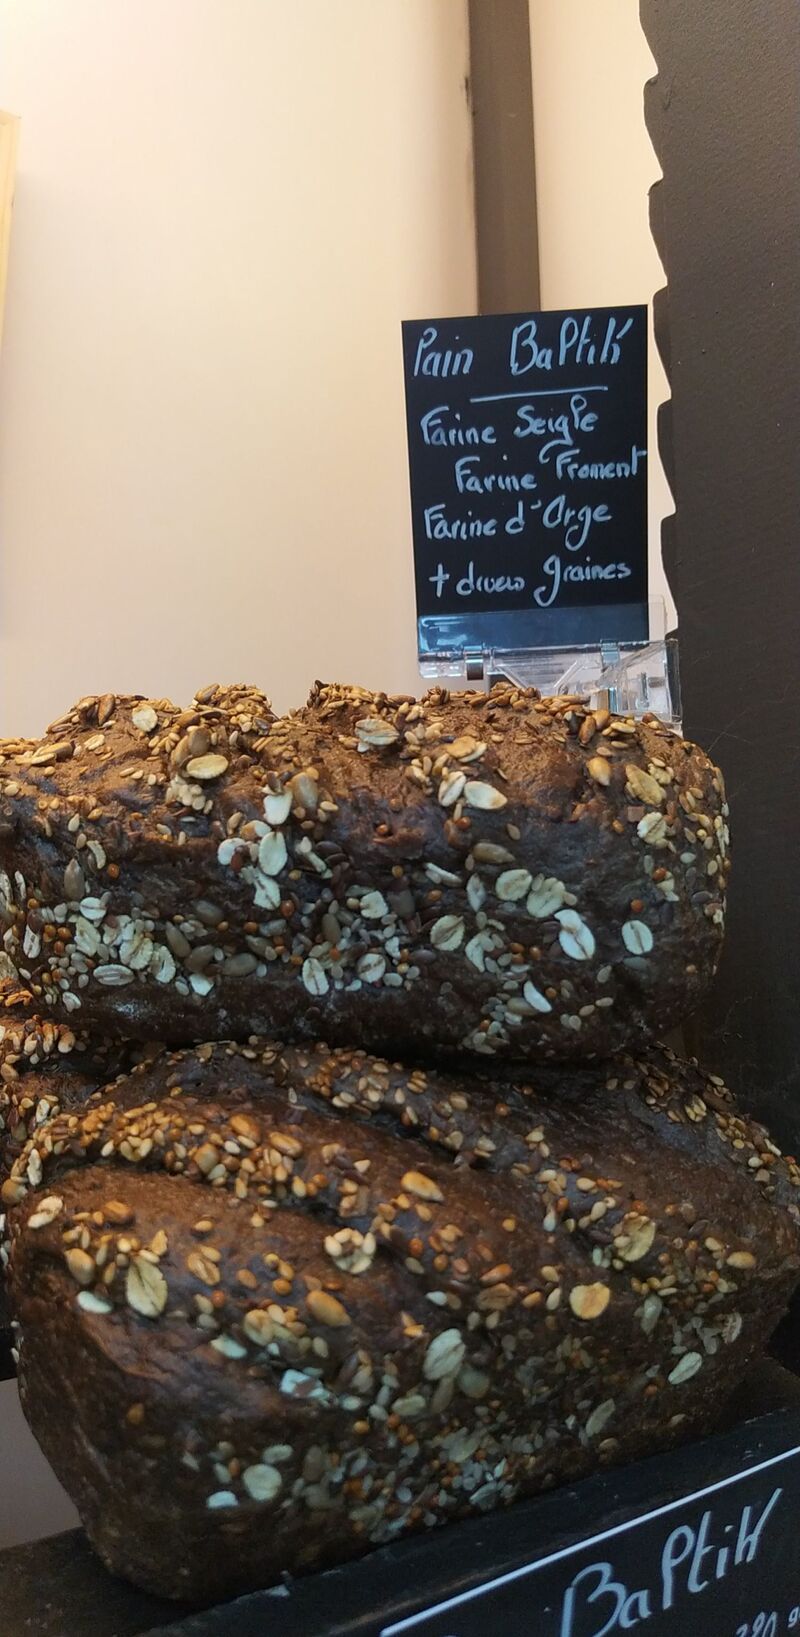 Pain BaPtik
Farine Seigle
Farine Froment
Farine d'Orge
+ divers graines
BaPtik